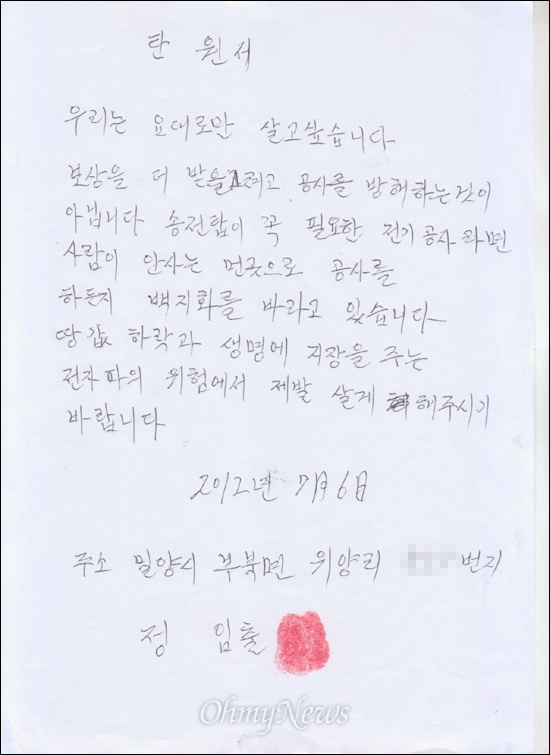 탄 원 서
우리는 요대로만 살고싶습니다
보상을 더 받을려고 공사를 방해하는것이
아닙니다 송전탑이 꼭 필요한 전기공사라면
사람이 안사는 먼곳으로 공사를
하든지 백지화를 바라고 있습니다
땅값 하락과 생명에 지장을 주는
전자파의 위험에서 제발 살게 해주시기
바랍니다
2012년 7月 6日
주소 밀양시 부북면 위양리 번지
정 임출
OhmyNews